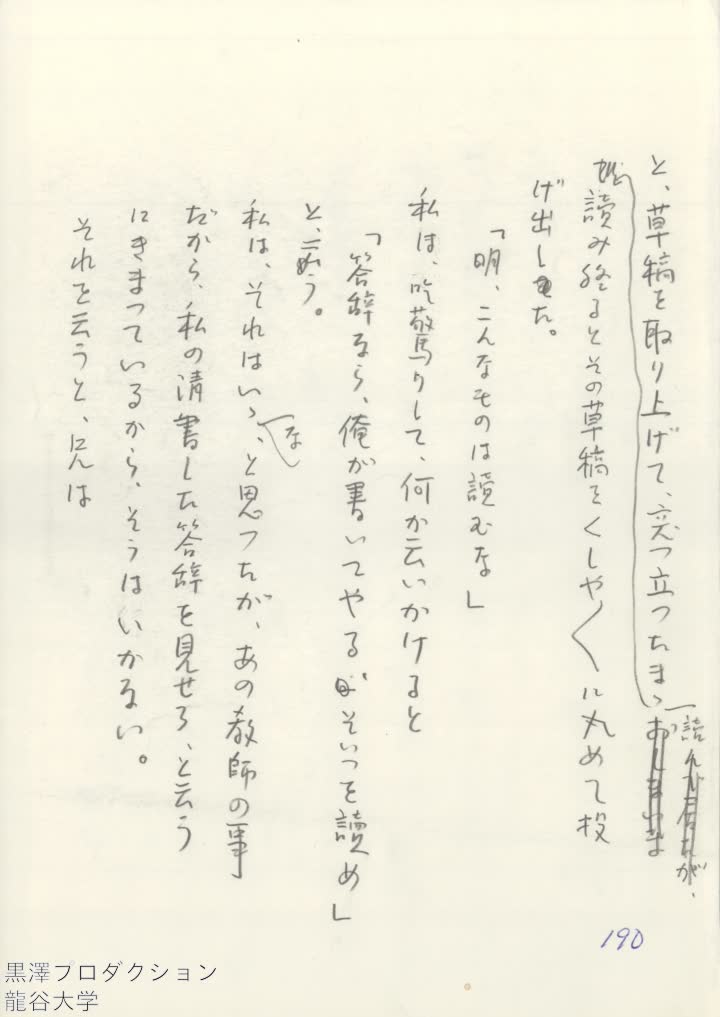 と、草稿を取り上げて、突つ立つたまゝ
読んで居たが、
おしまいま
読み終るとその草稿をくしや〱に丸めて投
げ出した。
「明、こんなものは読むな」
私は、吃驚りして、何か云いかけると
「答辞なら、俺が書いてやる そいつを讀め」
と、云う。
私は、それはいゝな、と思つたが、あの教師の事
だから、私の清書した答辞を見せろ、と云う
にきまつているから、そうはいかない。
それを云うと、兄は
190
黒澤プロダクション
龍谷大学